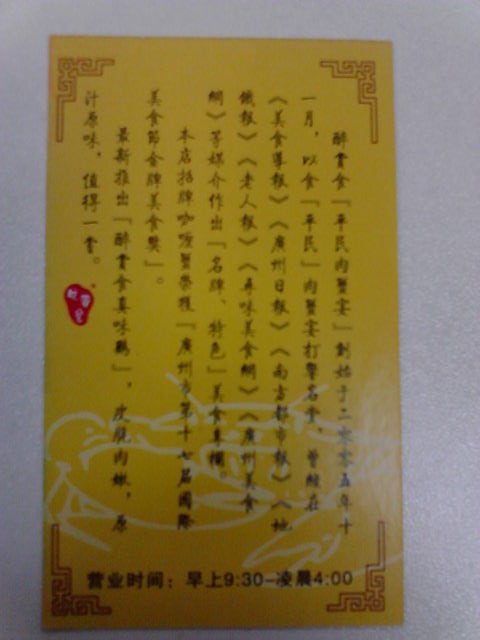 醉賞食『平民肉蟹宴』創始于二零零五年十
一月，以食『平民』肉蟹宴打響名堂，曾經在
《美食導報》《廣州日報》《南方都市報》《地
鐵報》《老人報》《尋味美食網》《廣州美食
網》等媒介作出『名牌、特色』美食專欄。
本店招牌咖喱蟹榮獲『廣州市第十七屆國際
美食節金牌美食獎』。
最新推出『醉賞食真味鵝』，皮脆肉嫩，原
汁原味，值得一嘗。
营业时间：早上9:30-凌晨4:00